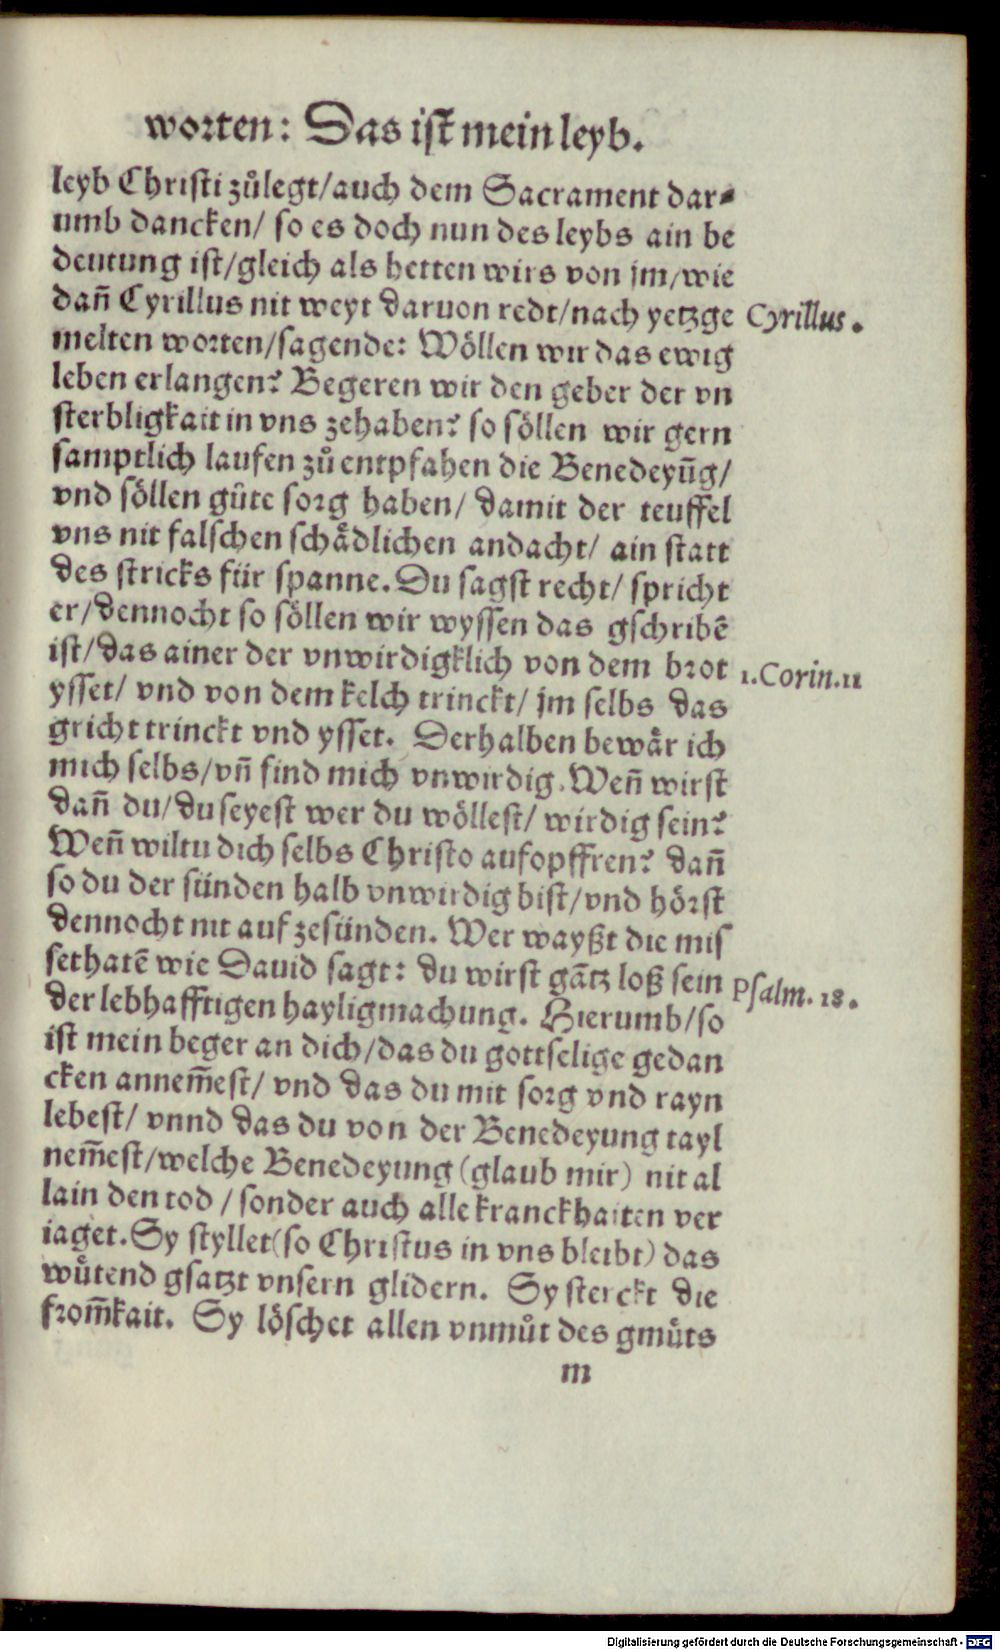 worten: Das ist mein leyb.
leyb Christi zůlegt/auch dem Sacrament dar⸗
umb dancken/ so es doch nun des leybs ain be
deutung ist/gleich als hetten wirs von jm/wie
dañ Cyrillus nit weyt daruon redt/nach yetzge
Cyrillus.
melten worten/sagende: Wöllen wir das ewig
leben erlangen? Begeren wir den geber der vn
sterbligkait in vns zehaben? so söllen wir gern
samptlich laufen zů entpfahen die Benedeyũg/
vnd söllen gůte sorg haben/ damit der teuffel
vns nit falschen schådlichen andacht/ ain statt
des stricks für spanne. Du sagst recht/ spricht
er/dennocht so söllen wir wyssen das gschribẽ
ist/das ainer der vnwirdigklich von dem brot
1.Corin.11
ysset/ vnd von dem kelch trinckt/ jm selbs das
gricht trinckt vnd ysset. Derhalben bewår ich
mich selbs/vñ find mich vnwirdig. Weñ wirst
dañ du/du seyest wer du wöllest/ wirdig sein?
Weñ wiltu dich selbs Christo aufopffren? dañ
so du der sünden halb vnwirdig bist/vnd hörst
dennocht nit auf zesünden. Wer wayßt die mis
sethatẽ wie Dauid sagt: du wirst gãtz loß sein
Psalm. 18.
der lebhafftigen hayligmachung. Hierumb/so
ist mein beger an dich/das du gottselige gedan
cken annem̃est/ vnd das du mit sorg vnd rayn
lebest/ vnnd das du von der Benedeyung tayl
nem̃est/welche Benedeyung (glaub mir) nit al
lain den tod / sonder auch alle kranckhaiten ver
iaget. Sy styllet(so Christus in vns bleibt) das
wůtend gsatzt vnsern glidern. Sy sterckt die
from̃kait. Sy löschet allen vnmůt des gmůts
m
Digitalisierung gefördert durch die Deutsche Forschungsgemeinschaft - DFG